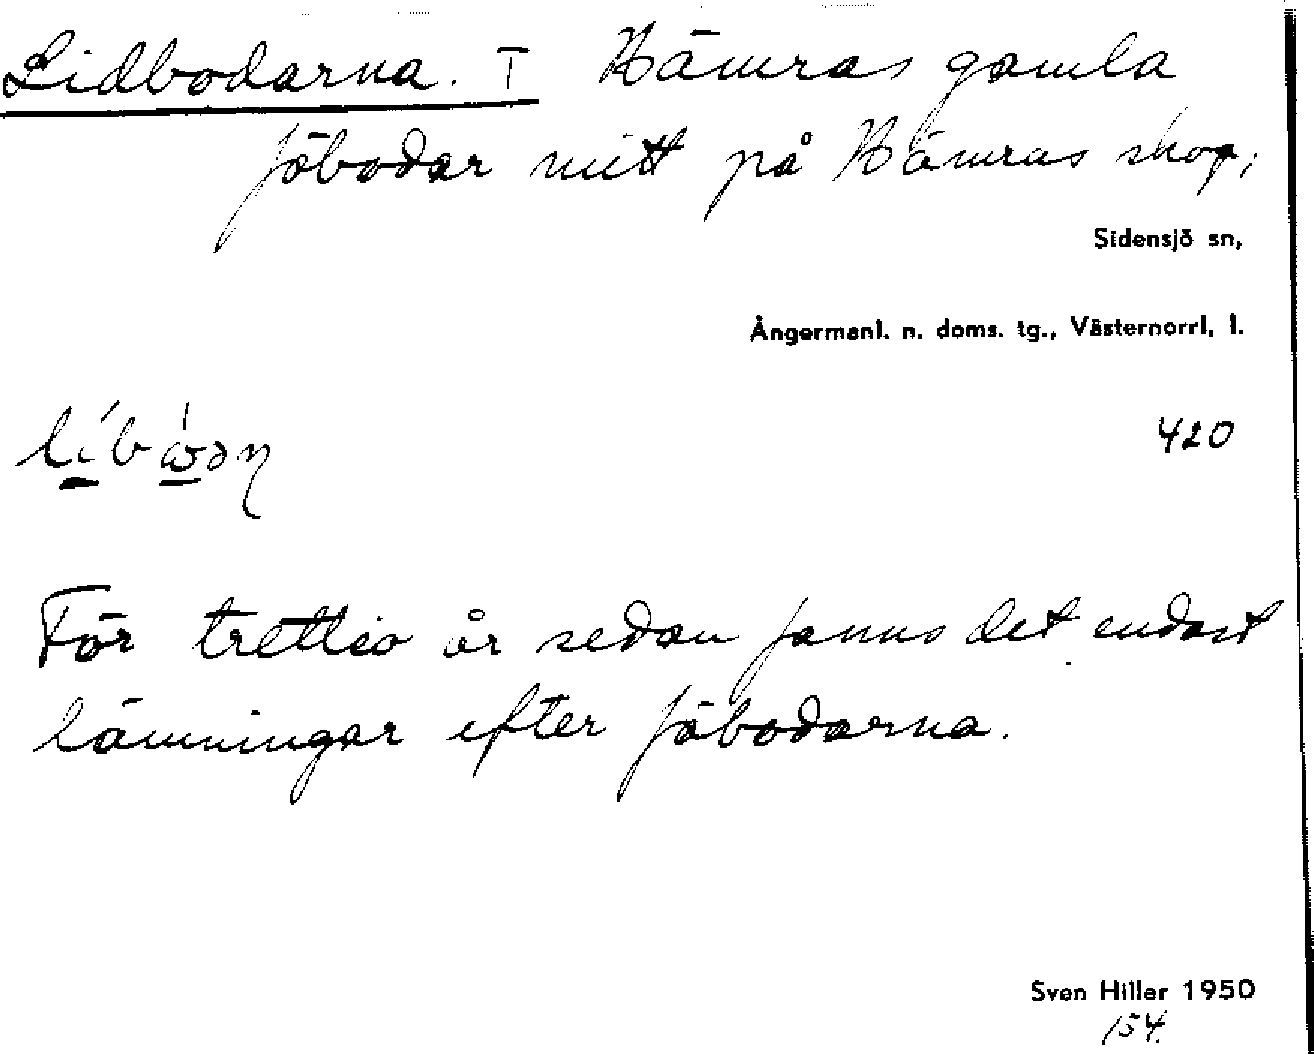 Lidbodarna. T Hämras gamla
fäbodar mitt på Hämras skog;
Sidensjö sn,
Ångermanl. n. doms. tg., Västernorrl. l.
420
För trettio år sedan fanns det endast
lämningar efter fäbodarna.
Sven Hiller 1950
154.